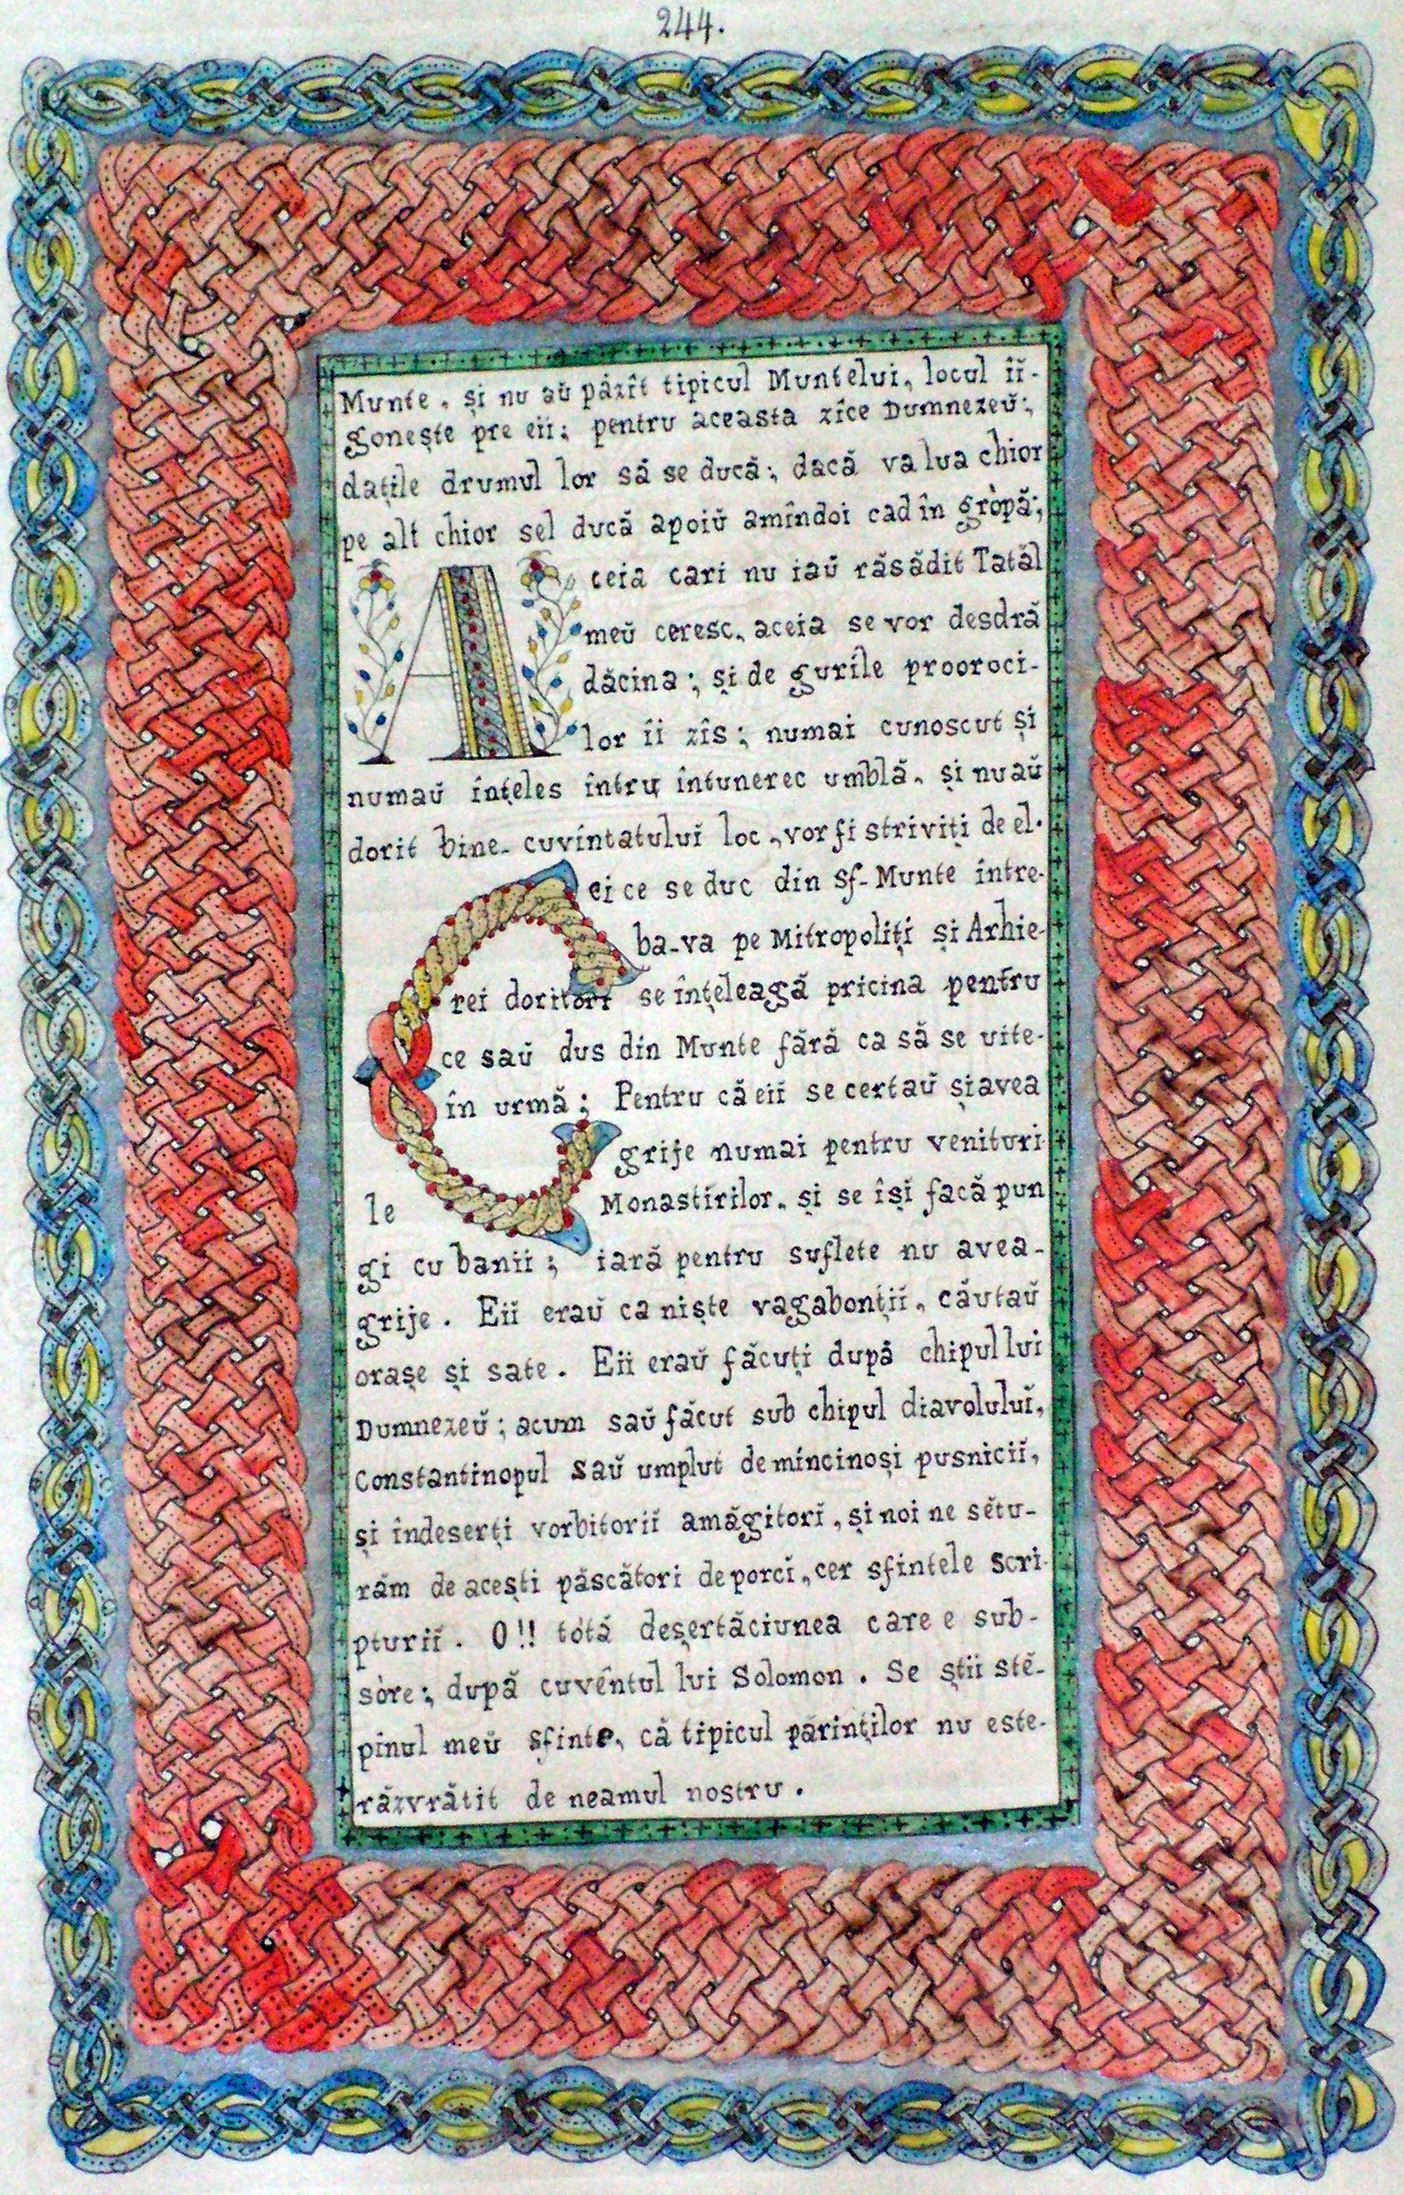 244.
Munte. și nu aŭ păzît tipicul Muntelui, locul îĭ-
gonește pre eii; pentru aceasta zîce Dumnezeŭ;
dațile drumul lor să se ducă; dacă va lua chior
pe alt chior sel ducă apoiŭ amîndoi cad în gròpă;
Aceia cari nu iaŭ răsădit Tatăl
meŭ ceresc, aceia se vor desdră
dăcina; și de gurile prooroci-
lor îi zîs; numai cunoscut și
numaŭ înțeles întru întunerec umblă, și nu aŭ
dorit bine-cuvîntatuluĭ loc, vor fi striviți de el.
Cei ce se duc din Sf-Munte între-
ba-va pe Mitropoliți și Arhie-
rei doritori se înțeleagă pricina pentru
ce saŭ dus din Munte fără ca să se uite-
în urmă; Pentru că eii se certaŭ și avea
grije numai pentru venituri
le Monastirilor, și se îșĭ facă pun
gi cu banii; iară pentru suflete nu avea-
grije. Eiĭ eraŭ ca niște vagabonțiĭ, căutaŭ
orașe și sate. Eii eraŭ făcuți după chipul lui
Dumnezeŭ; acum saŭ făcut sub chipul diavoluluĭ,
Constantinopul saŭ umplut de mincinoși pusniciĭ,
și îndeserți vorbitoriĭ amăgitorĭ, și noi ne sĕtu-
răm de acești păscători de porcĭ, cer sfintele Scri-
pturiĭ. O!! tòtă deșertăciunea care e sub-
sòre; după cuvêntul lui Solomon. Se știi stĕ-
pinul meŭ sfinte, că tipicul părinților nu este-
răzvrătit de neamul nostru.